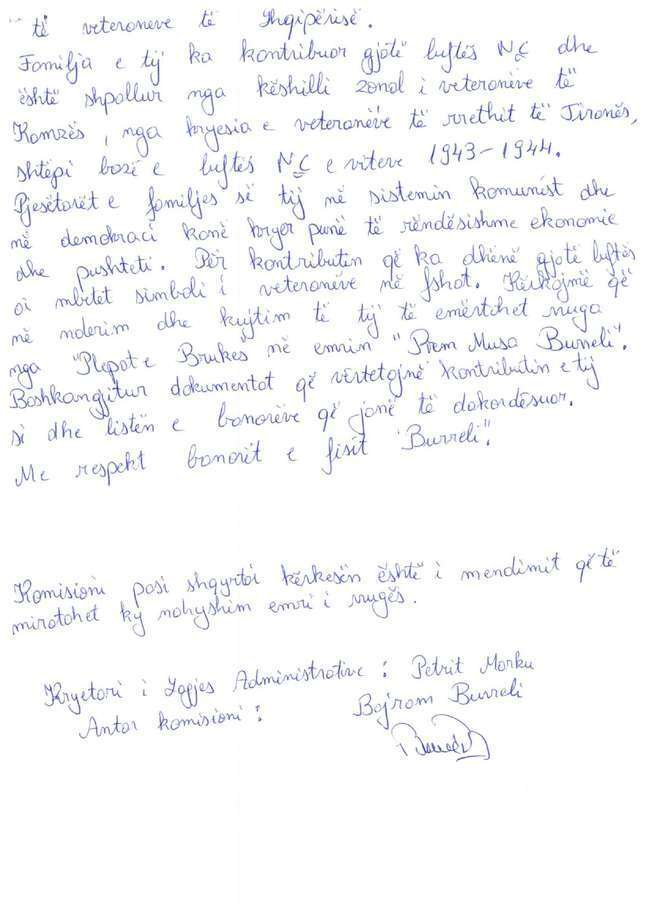 të veteraneve të Shqipërisë.
Familja e tij ka kontribuar gjatë luftës NÇ dhe
është shpallur nga këshilli zonal i veteranëve të
Kamzës, nga kryesia e veteranëve të rrethit të Tiranës,
shtëpi bazë e luftës NÇ e viteve 1943-1944.
Pjesëtarët e familjes së tij në sistemin komunist dhe
në demokraci kanë kryer punë të rëndësishme ekonomie
dhe pushteti. Për kontributin që ka dhënë gjatë luftës
ai mbetet simboli i veteranëve në fshat. Kërkojmë që
në nderim dhe kujtim të tij të emërtohet rruga
nga "Plepat e Brukes" në emrin "Prem Musa Burreli".
Bashkangjitur dokumentat që vërtetojnë kontributin e tij
si dhe listën e banorëve që janë të dakordësuar.
Me respekt banorët e fisit "Burreli".
Komisioni pasi shqyrtoi kërkesën është i mendimit që të
miratohet ky ndryshim emri i rrugës.
Kryetari i Lagjes Administrative: Petrit Marku
Antar komisioni: Bajram Burreli